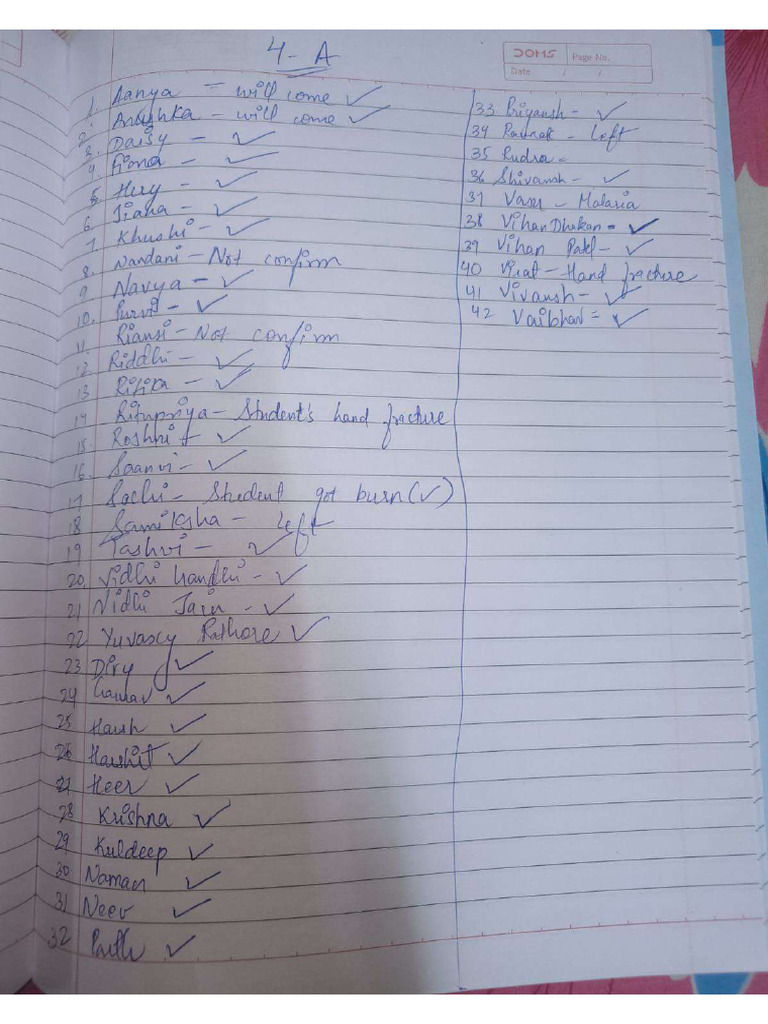 4-A
DOMS
Page No.
Date / /
1. Aanya - will come ✓
2. Anushka - will come ✓
3. Daisy - ✓
4. Fiona - ✓
5. Hery - ✓
6. Jiana - ✓
7. Khushi - ✓
8. Nandani - Not confirm
9 Navya - ✓
10. Purvi - ✓
11. Riansi - Not confirm
12 Riddhi - ✓
13 Ritika - ✓
14 Ritupriya - Student's hand fracture
15. Roshni - ✓
16. Saanvi - ✓
17 Sachi - Student got burn (✓)
18 Samiksha - left
19 Tashvi - ✓
20. Vidhi - ✓
21 Nidhi Jain - ✓
22 Rathore ✓
23 ✓
24 Gaurav ✓
25 Harsh ✓
26 Harshit ✓
27 Heer ✓
28 Krishna ✓
29 Kuldeep ✓
30 Naman ✓
31 Neev ✓
32 Parth ✓
33 Priyansh - ✓
34 Raunak - left
35 Rudra -
36 Shivansh - ✓
37 - Malaria
38 Vihan Dhakan - ✓
39 Vihan Patel - ✓
40 Virat - Hand fracture
41 Vivansh - ✓
42 Vaibhav = ✓